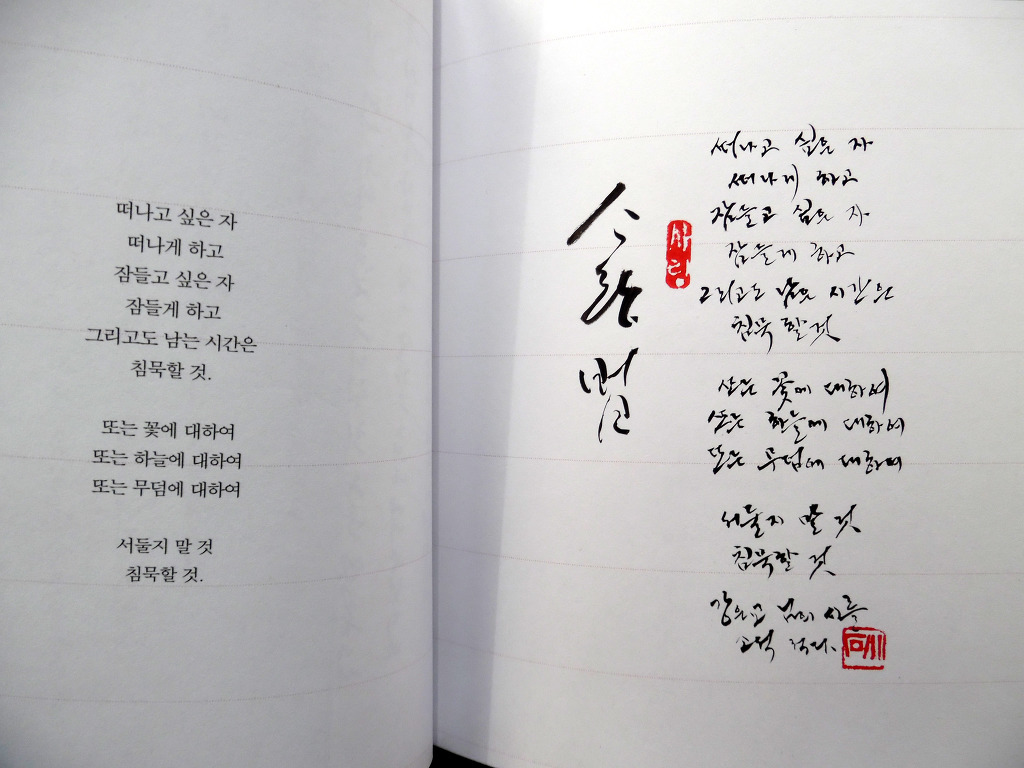 떠나고 싶은 자
떠나게 하고
잠들고 싶은 자
잠들게 하고
그리고도 남는 시간은
침묵할 것.
또는 꽃에 대하여
또는 하늘에 대하여
또는 무덤에 대하여
서둘지 말 것
침묵할 것.
사랑법
사랑
떠나고 싶은 자
떠나게 하고
잠들고 싶은 자
잠들게 하고
그리고도 남은 시간은
침묵할 것
또는 꽃에 대하여
또는 하늘에 대하여
또는 무덤에 대하여
서둘지 말 것
침묵할 것
강은교 님의 시를
적다.